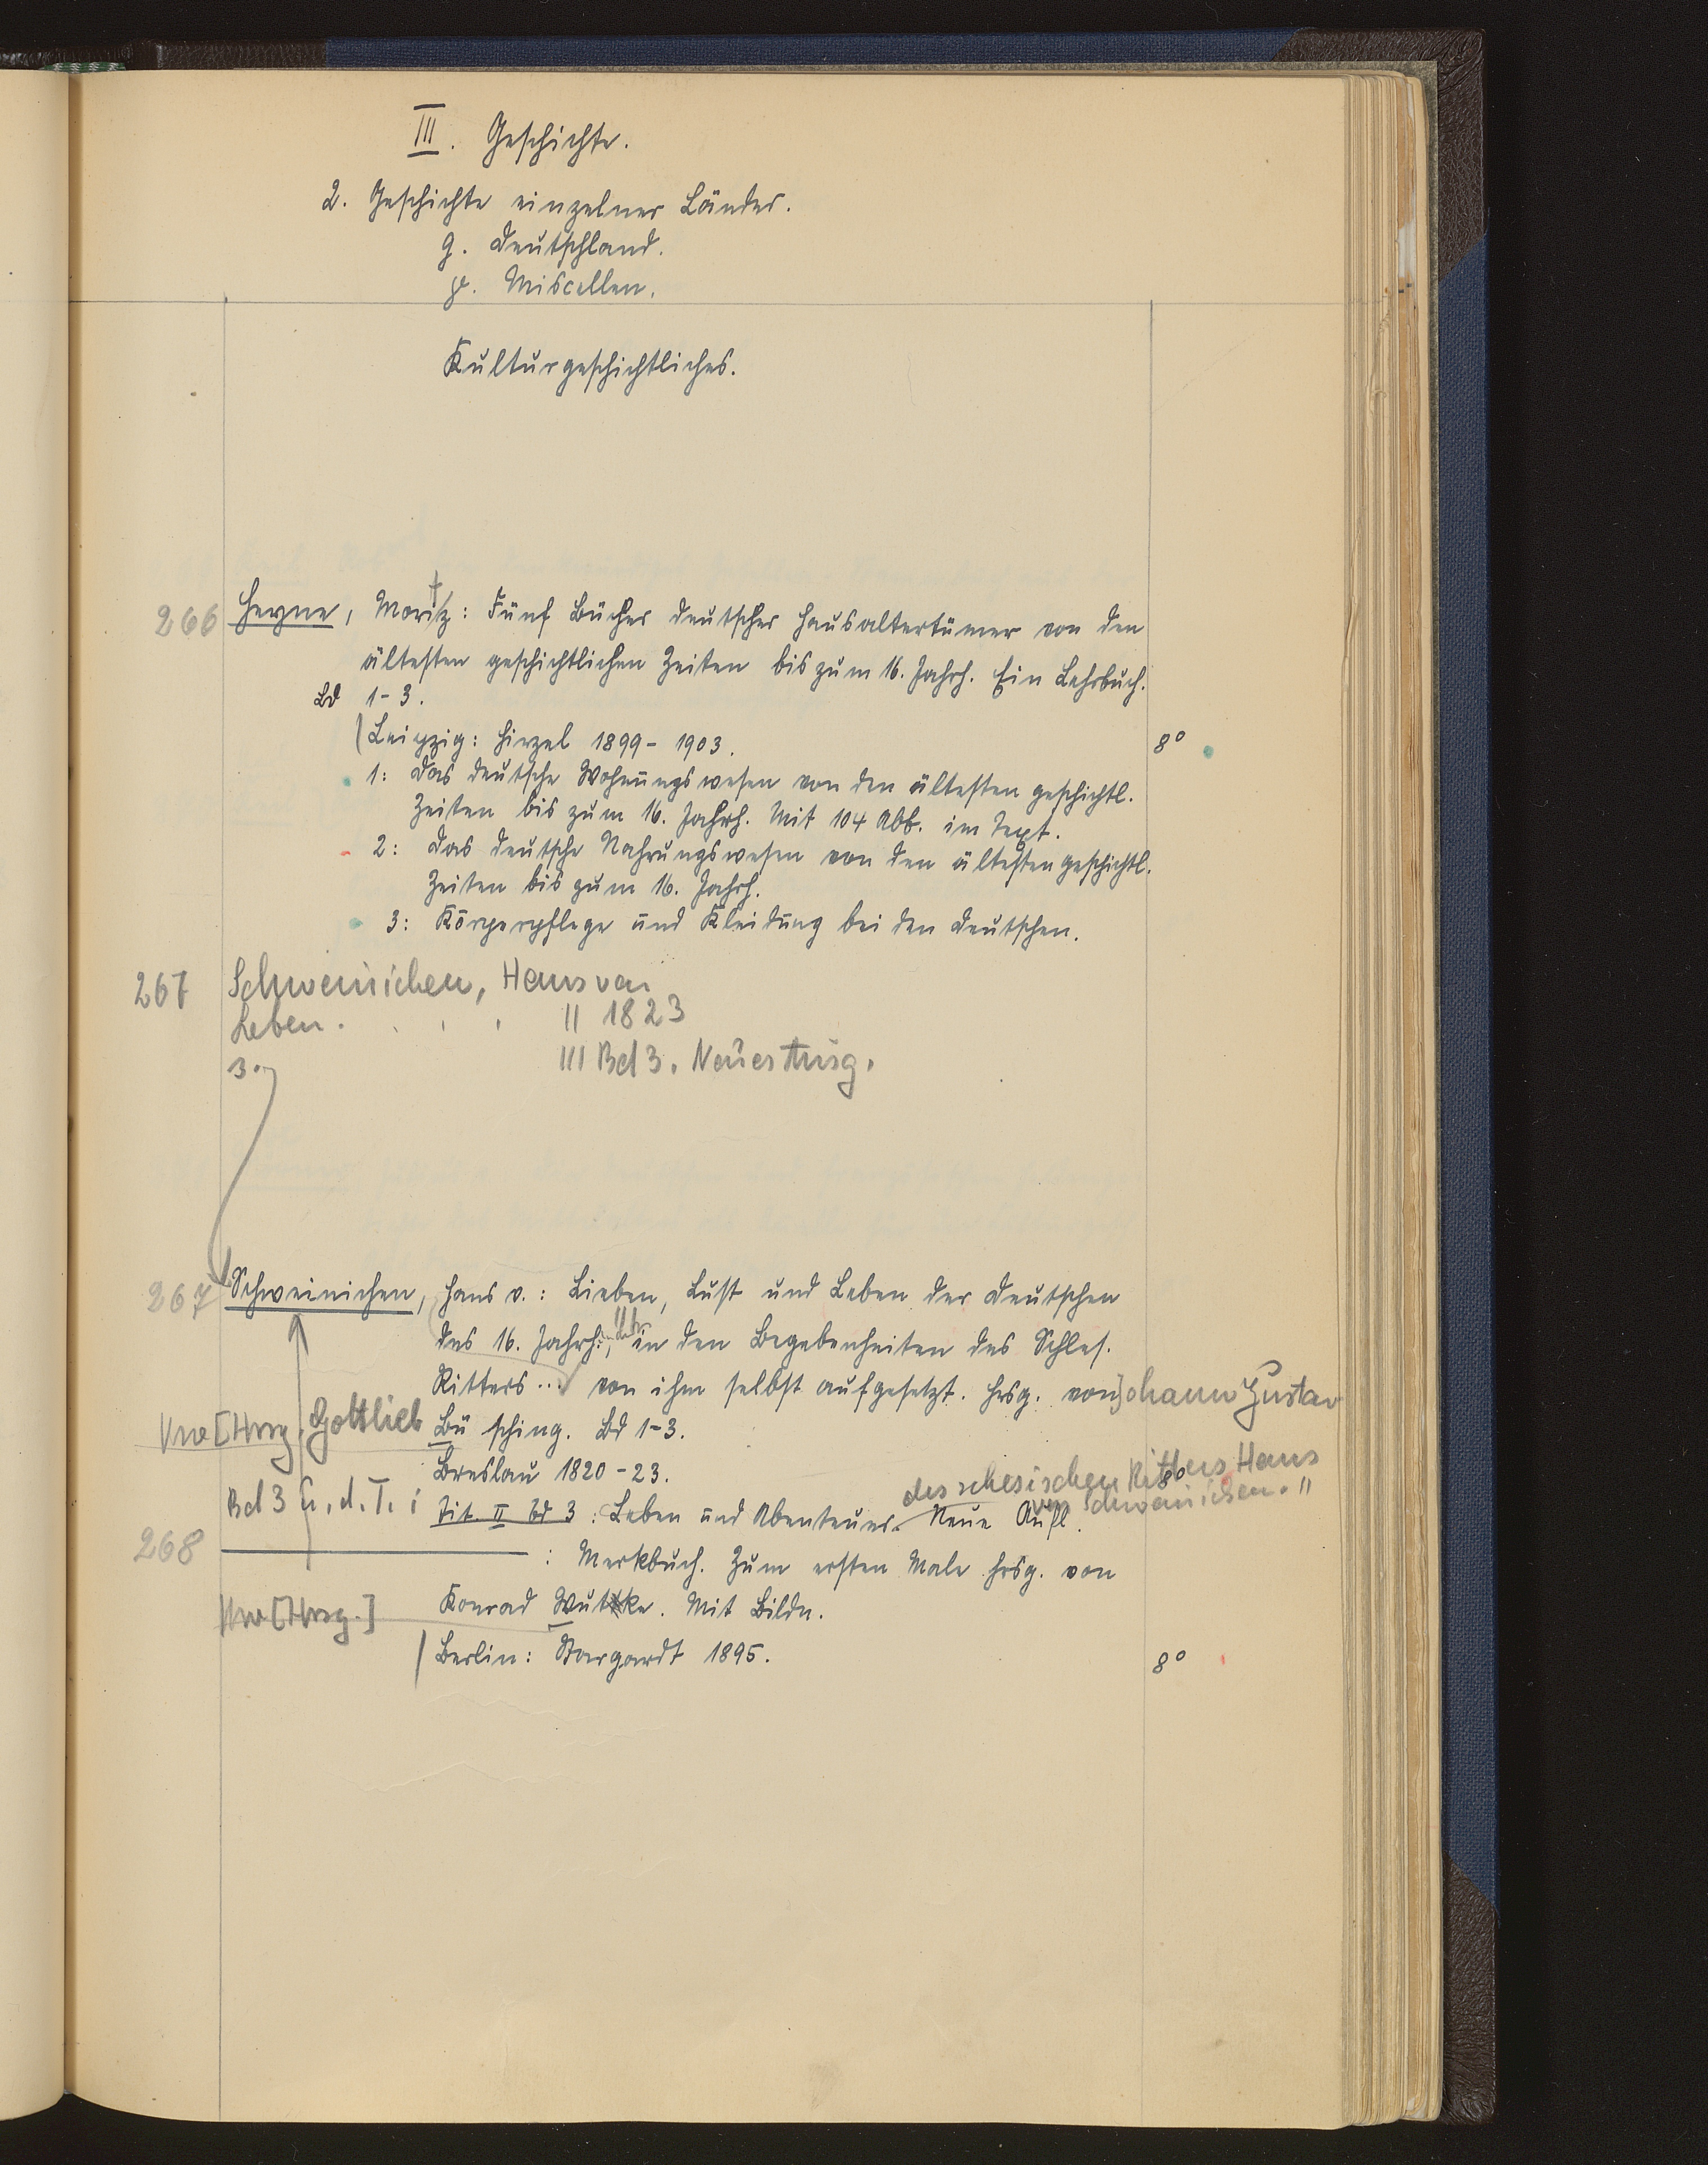 III. Geschichte.
2. Geschichte einzelner Länder.
g. Deutschland.
p. Miscellen.
Kulturgeschichtliches.
266 Heyne, Moritz: Fünf Bücher deutscher Hausaltertümer von den
ältesten geschichtlichen Zeiten bis zum 16. Jahrh. Ein Lehrbuch.
Bd 1-3.
Leipzig: Hirzel 1899-1903. 8°
1: Das deutsche Wohnungswesen von den ältesten geschichtl.
Zeiten bis zum 16. Jahrh. Mit 104 Abb. im Text.
2: Das deutsche Nahrungswesen von den ältesten geschichtl.
Zeiten bis zum 16. Jahrh.
3: Körperpflege und Kleidung bei den Deutschen.
267 Schweinichen, Hans von
Leben. . . . II 1823
3. III Bd 3. Neue Ausg.
267 Schweinichen, Hans v.: Lieben, Lust und Leben der Deutschen
des 16. Jahrh., in den Begebenheiten des Schles.
Ritters... von ihm selbst aufgesetzt. Hrsg. von Johann Gustav
Vw [Hrsg. Gottlieb Büsching. Bd 1-3.
Breslau 1820-23. 8°
des schlesischen Ritters Hans
von Schweinichen."
Bd 3 u. d. T.: Tit. II Bd 3: Leben und Abenteuer. Neue Aufl.
268 ——— : Merkbuch. Zum ersten Male hrsg. von
Vw [Hrsg.] Konrad Wutke. Mit Bildn.
Berlin: Stargardt 1895. 8°